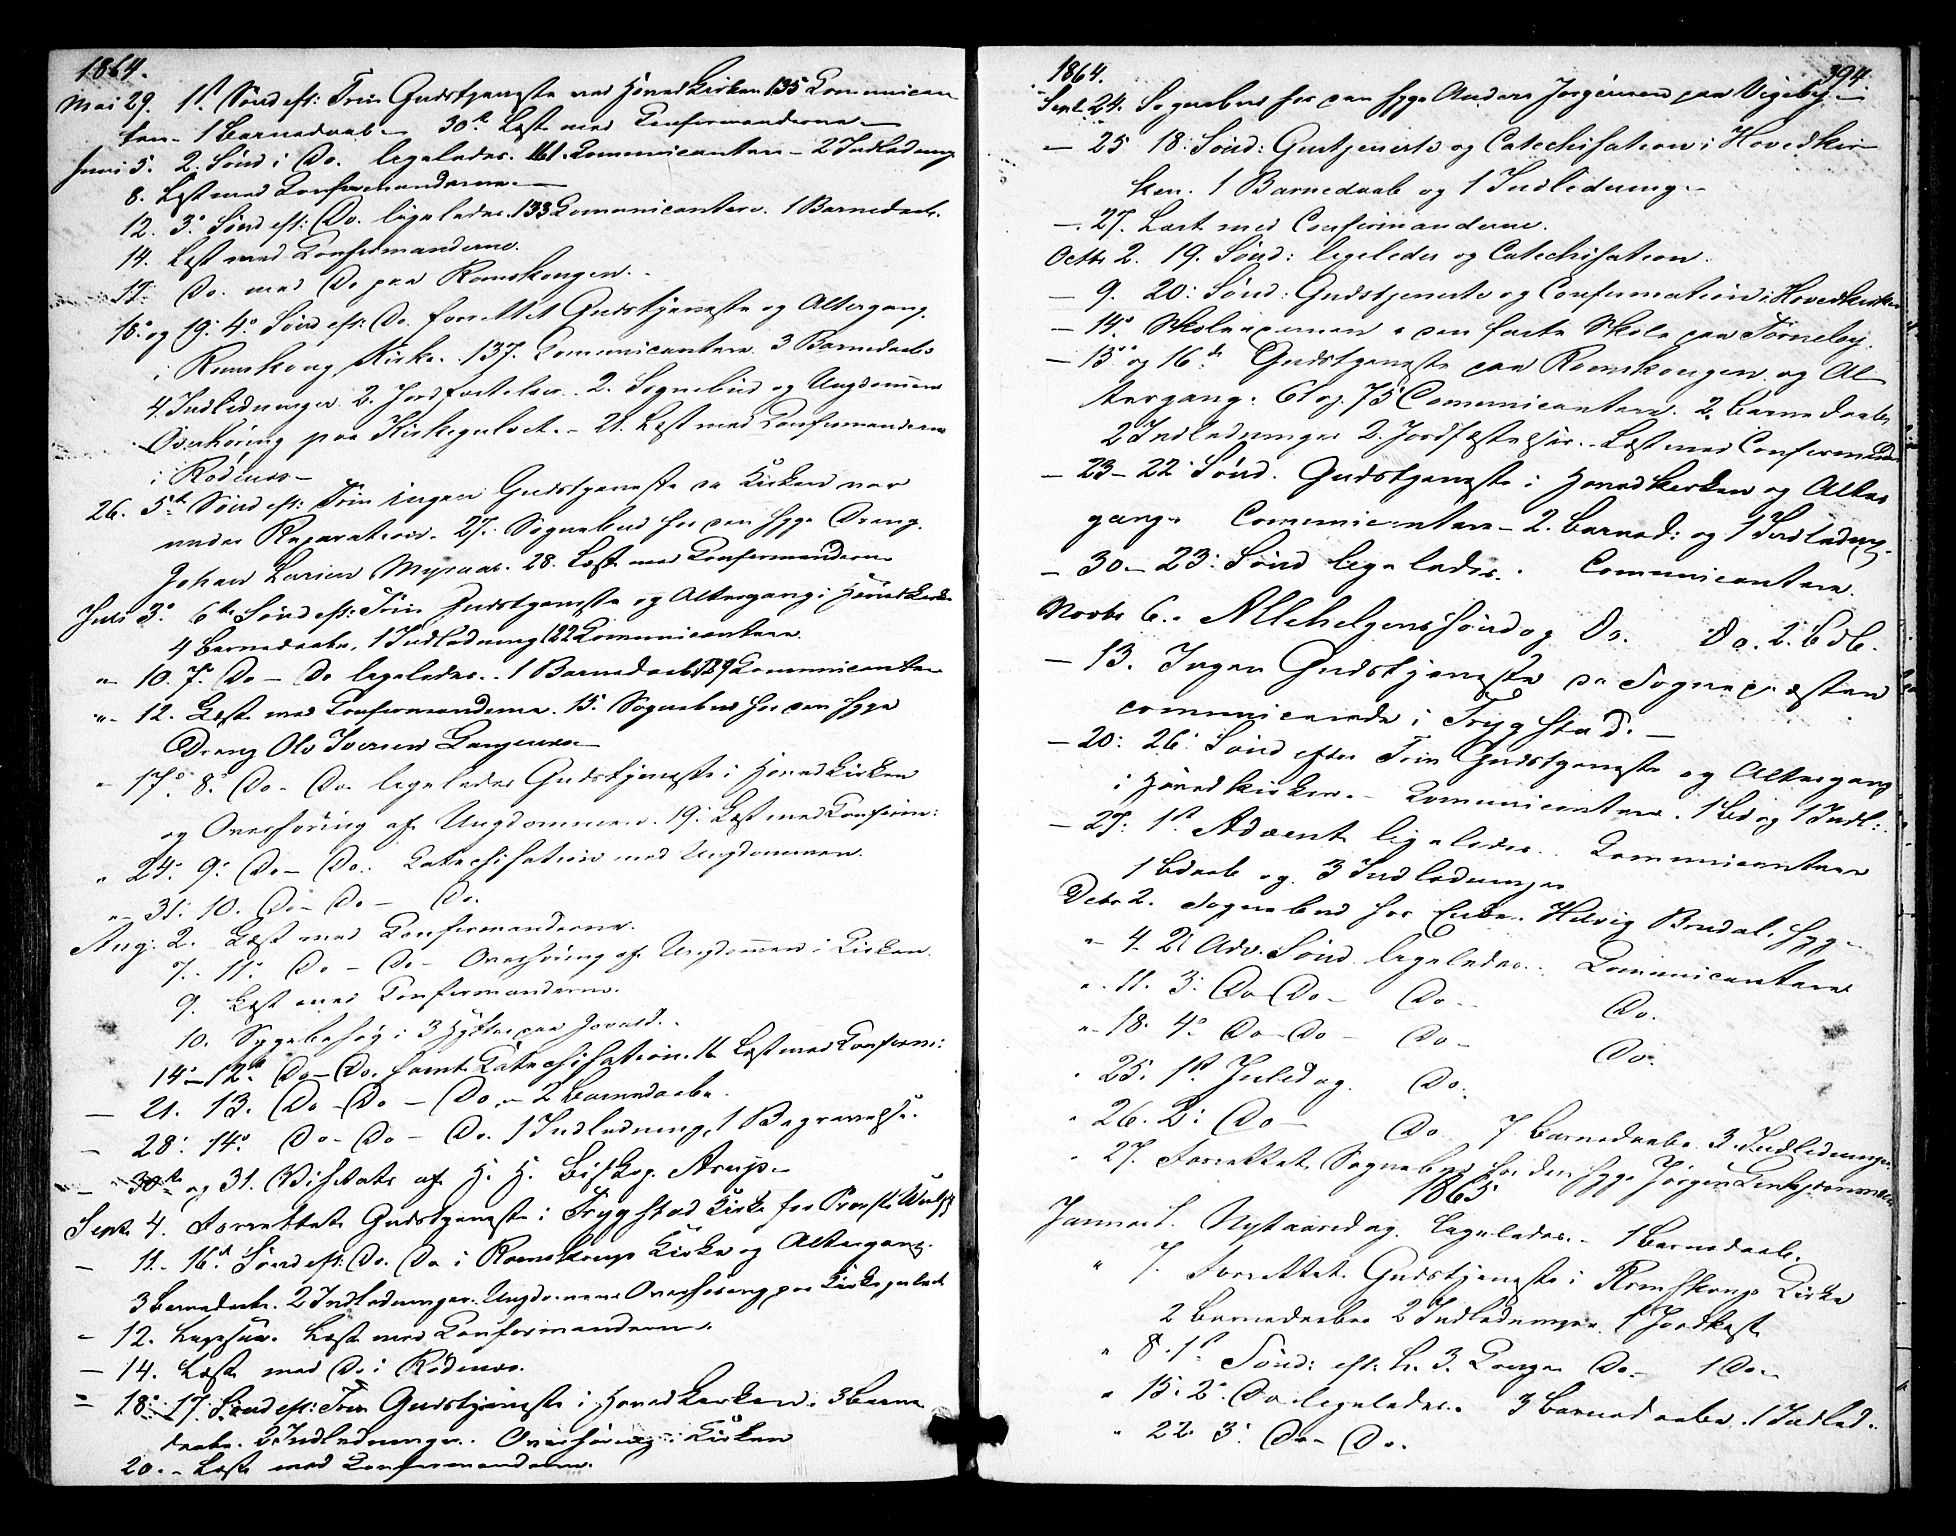 1864.
Mai 29. 1ste Sønd eft: Trin Gudstjeneste ved Hovedkirken 135 Communican
ter. 1 Barnedaab. 30te Læst med Confirmanderne
Juni 5. 2. Sønd i Do. ligeledes. 161. Communicanter – 2 Indledning
8. Læst med Confirmanderne.
12. 3: Sønd eft: Do. ligeledes. 133 Communicantere. 1 Barnedaab.
14. Læst med Confirmanderne.
17. Do. med Do paa Romskougen.
18: og 19: 4: Sønd eft: Do. forrettet Gudstjeneste og Altergang.
i Romskoug Kirke. 137. Communicantere 3 Barnedaabe
4. Indledninger. 2. Jordfæstelser. 2. Sognebud og Ungdommens
Overhøring paa Kirkegulvet. – 21. Læst med Confirmanderne
i Rødenæs –
26. 5te Sønd eft: Trin ingen Gudstjeneste da Kirken var
under Reparation. 27. Sognebud hos den syge Dreng.
Johan Larsen Myraas. 28. Læst med Confirmanderne
Juli 3: 6te Sønd eft: Trin Gudstjeneste og Altergang i Hovedkirke
4 Barnedaabe, 1 Indledning 122 Communicantere
" 10. 7: Do – Do ligeledes. 1 Barnedaab 129 Communicanter
" 12. Læst med Confirmanderne. 15. Sognebud hos den syge
Dreng Ole Iversen
" 17: 8: Do – Do ligeledes Gudstjeneste i Hovedkirken
og Overhøring af Ungdommen. 19: Læst med Confirm:
" 24: 9: Do – Do. Catechisation med Ungdommen.
" 31: 10. Do – Do – Do.
Aug: 2. Læst med Confirmanderne.
7. 11: Do – Do – Overhøring af Ungdommen i Kirken.
9. Læst med Confirmanderne.
10. Sygebesøg i 3 paa
14: – 12te Do – Do. samt Catechisation. 16 Læst med Confirm:
– 21. 13. Do – Do – Do – 2 Barnedaabe.
– 28: 14: Do – Do – Do. 1 Indledning, 1 Begravelse.
– 30te og 31. Visitats af H. H. Biskop Arup.
Septr 4. Forrettet Gudstjeneste i Trygstad Kirke for Provst
– 11. 16de Sønd eft: Do. Do i Romskougs Kirke og Altergang.
3 Barnedaabe. 2 Indledninger. Ungdommens Overhøring paa Kirkegulvet
– 12. Læst med Confirmanderne.
– 14. Læst med Do i Rødenæs.
– 18: 17: Sønd eft: Trin Gudstjeneste i Hovedkirken. 3 Barne
daabe. 2 Indledninger. Overhøring i Kirken
20. – Læst med Confirmanderne.
1864. 394.
Sept. 24. Sognebud hos den syge Anders Jørgensen paa Vigeby.
– 25 18: Sønd: Gustjeneste og Catechisation i Hovedkir
ken. 1 Barnedaab og 1 Indledning. –
– 27. Læst med Confirmanderne.
Octbr 2. 19. Sønd: ligeledes og Catechisation.
– 9. 20: Sønd: Gudstjeneste og Confirmation i Hovedkirken
– 14: Skoleexamen i den faste Skole paa Tørneby.
– 15: og 16de Gudstjeneste paa Romskougen og Al
tergang. 61 og 75 Communicantere. 2 Barnedaabe
2 Indledninger 2. Jordfæstelser. Læst med Confirmander
– 23 – 22 Sønd. Gudstjeneste i Hovedkirken og Alter
gang. Communicantere – 2. Barned: og 1 Indledning.
– 30 – 23: Sønd ligeledes. Communicantere.
Novbr 6. Allehelgens Søndag Do. Do. 2. Bdb.
– 13. Ingen Gudstjeneste da Sognepræsten
communicerede i Trygstad. –
– 20: 26: Sønd efter Trin Gudstjeneste og Altergang
i Hovedkirken. – Communicantere. 1 Bd og 1 Indl:
– 27: 1ste Advent ligeledes. Communicantere
1 Bdaab og 3 Indledninger
Debr 2. Sognebud hos Enke. Helvig Brudal, syg –
" 4. 2. Adv. Sønd. ligeledes. Communicantere
" 11. 3: Do Do – Do – Do.
" 18. 4: Do – Do – Do – Do.
" 25. 1ste Juledag. Do.
" 26. 2: Do – Do 7 Barnedaabe. 3. Indledninger
" 27. Forrettet Sognebud hos den syge Jørgen
1865
Januar 1. Nytaarsdag. ligeledes. – 1 Barnedaab.
" 7. Forrettet Gudstjeneste i Romskougs Kirke
2 Barnedaabe 2 Indledninger. 1 Jordkast
" 8. 1ste Sønd: eft: h. 3. Konger Do – 1 Do –
" 15. 2. Do ligeledes. 3 Barnedaabe. 1 Indled.
" 22. 3: Do – Do.